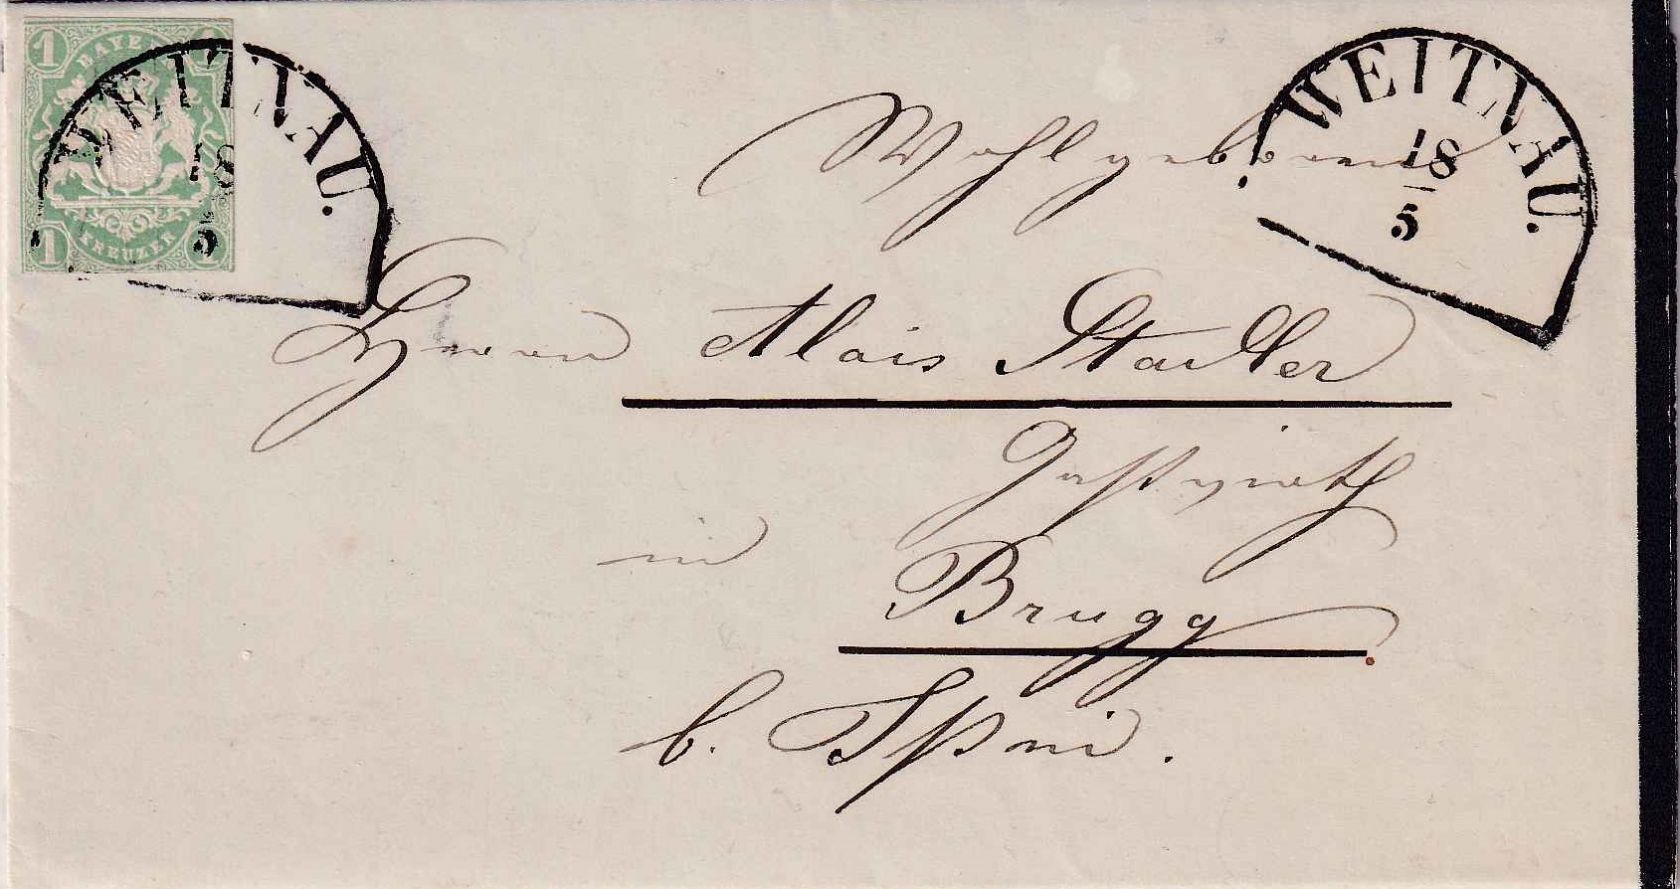 1
BAYERN
KREUZER
1
1
WEITNAU.
18
5
WEITNAU.
18
5
Wohlgeboren
Herrn Alois Stadler
Gastwirth
in Brugg
b.